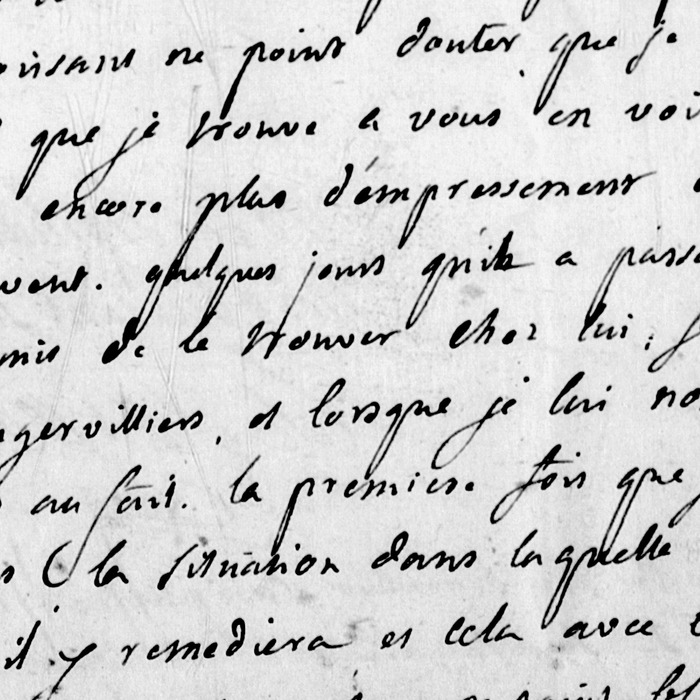 ne point douter que je
que je trouve a vous en voi
encore plus d'empressement
vent. quelques jours qu'il a passe
mis de le trouver chez lui,
gervilliers, et lorsque je lui
au fait. la premiere fois que
la situation dans laquelle
il y remediera et cela avec